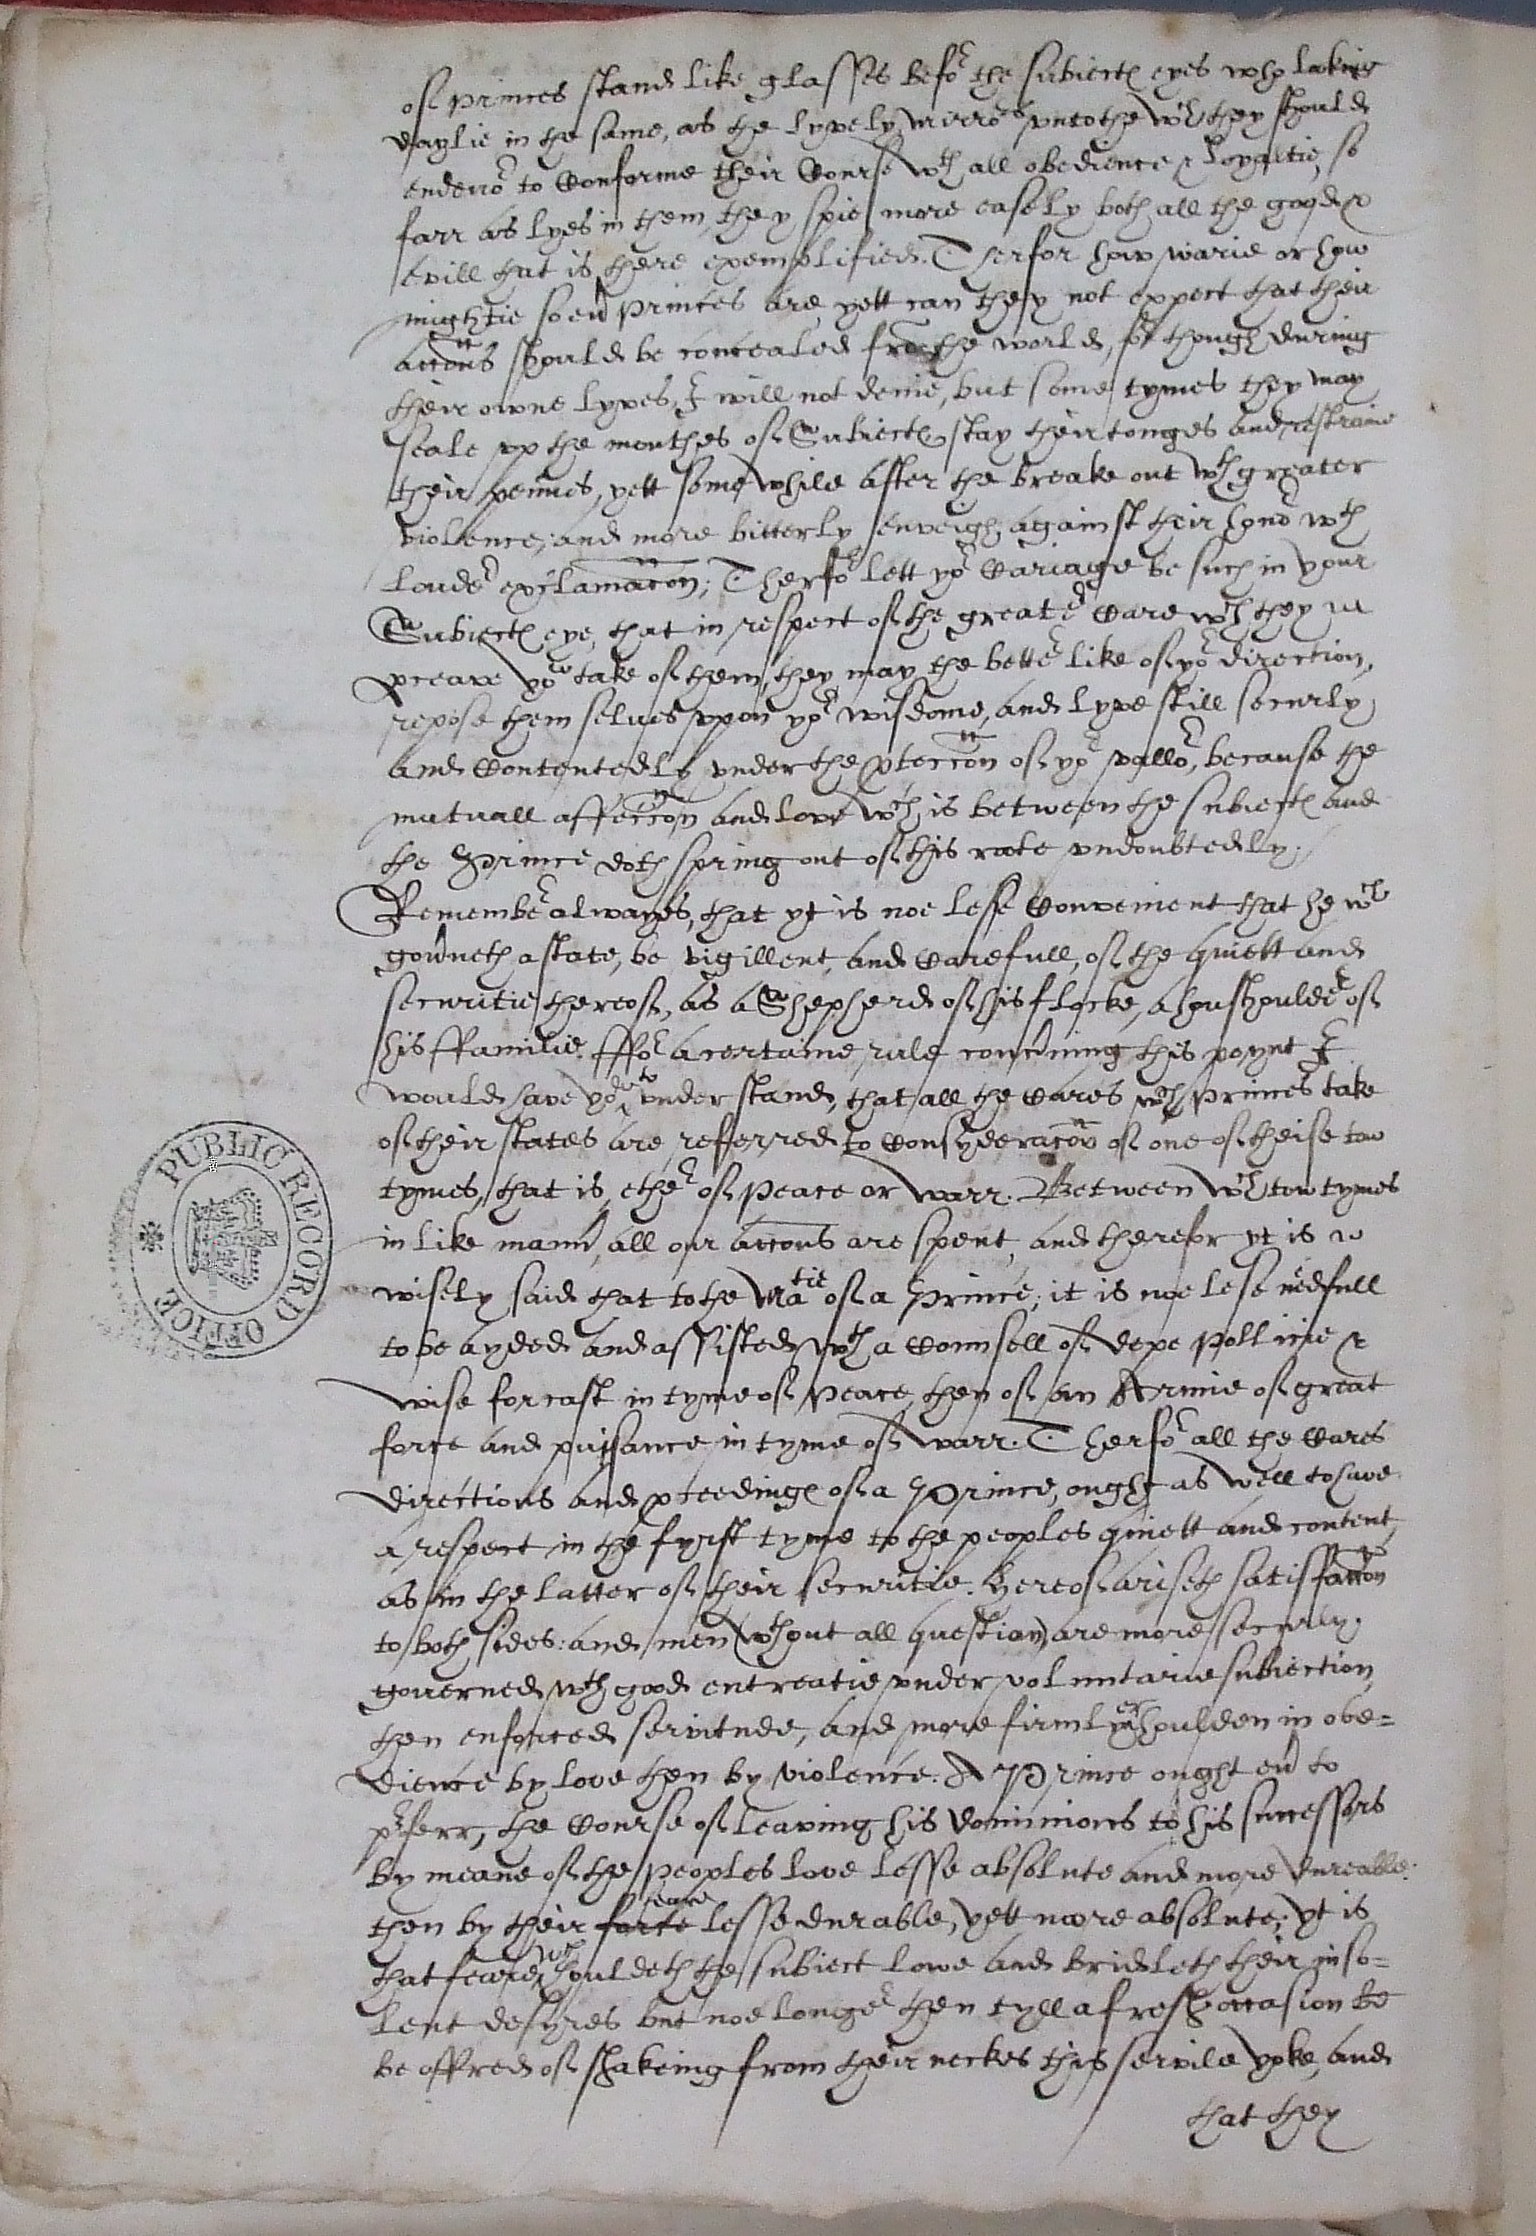 of princes stand like glasses befor the subiectes eyes who looking
daylie in the same, as the lyvely mirrors vnto the wch they should
endevor to conforme their course wth all obedience & loyaltie, so
farr as lyes in them, they spie more easely both all the good &
evill that is there exemplified. Therfor how warie or how
mightie soeuer princes are, yett can they not expect that their
accons should be concealed from the world, for though during
their owne lyves, I will not denie, but some tymes they may
seale vp the mouthes of Subiectes, stay their tonges and restraine
their pennes, yett some while after the breake out wth greater
violence, and more bitterly enveigh against their honor wth
louder exclamacon; Therfor lett yor cariage be such in your
Subiectes eye, that in respect of the greate care wch they
perceave yow take of them, they may the better like of yor direction,
repose them selues vpon yor wisdome, and lyve still securly
and contentedly vnder the proteccon of yor vallor, because the
mutuall affeccon and love wch is between the subiectes and
the Prince doth spring out of this roote vndoubtedly.
Remember alwayes, that yt is noe lesse convenient that he wch
gouerneth a state, be vigillent, and carefull, of the quiett and
securitie thereof, as a Shepherd of his flocke, a houshoulder of
his ffamilie. ffor a certaine rule concerning this poynt I
would have yow to vnderstand, that all the cares wch princes take
of their states are referred to consyderacon of one of theise tow
tymes, that is ether of peace or warr. Between wch tow tymes
in like manner, all our accons are spent, and therefor yt is
wisely said that to the Matie of a Prince, it is noe lese needfull
to be ayded and assisted wth a counsell of depe pollicie &
wise forcast in tyme of peace, then of an Armie of great
force and puisance in tyme of warr. Therfor all the cares
directions and proceedinges of a Prince, ought as well to have
a respect in the fyrst tyme to the peoples quiett and content,
as in the latter of their securitie. Hereof ariseth satisfaccon
to both sides: and men (wthout all question) are more securly
governed wth good entreatie vnder voluntarie subiection,
then enforced servitude, and more firmly vphoulden in obe=
dience by love then by violence. A Prince ought euer to
prferr, the course of leaving his dominions to his successors
by meane of the peoples love lesse absolute and more dureable:
then by their feare lesse durable, yett more absolute; yt is
that feare wch houldeth the subiect lowe and bridleth their inso=
lent desyres but noe longer then tyll a fresh occasion be
be offred of shakeing from their neckes this servile yoke, and
that they
PUBLIC RECORD OFFICE